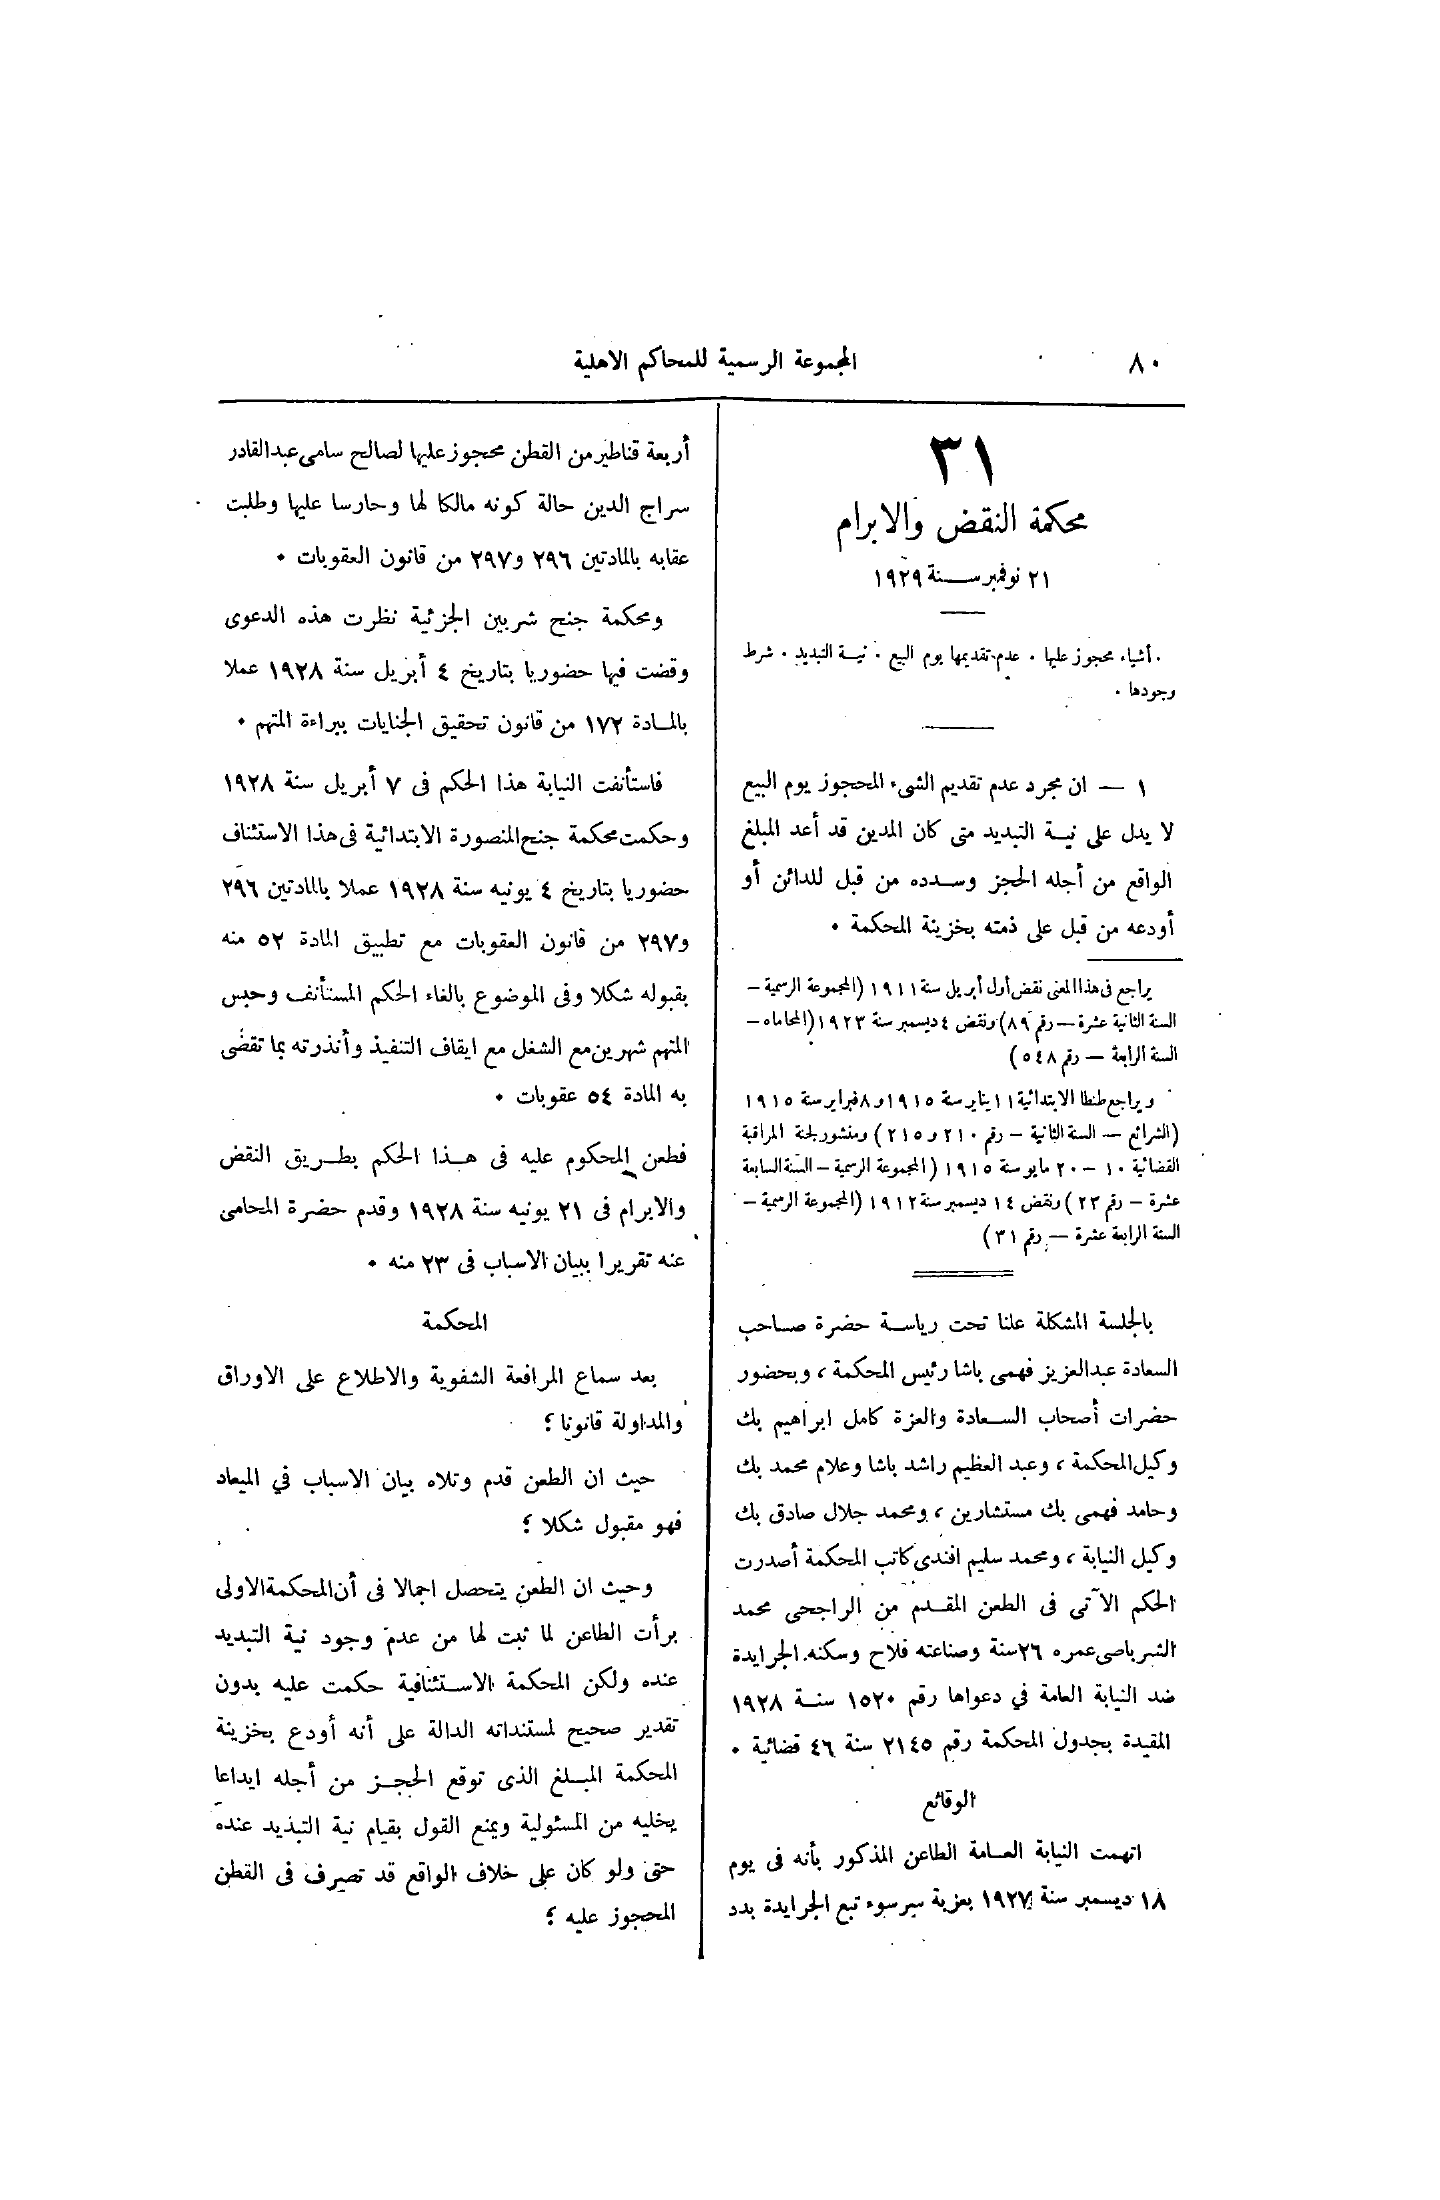 ٨٠
المجموعة الرسمية للمحاكم الاهلية
٣١
محكمة النقض والابرام
٢١ نوفمبر سنة ١٩٢٩
أشياء محجوز عليها . عدم تقديمها يوم البيع . نية التبديد . شرط
وجودها .
١ — ان مجرد عدم تقديم الشىء المحجوز يوم البيع
لا يدل على نية التبديد متى كان المدين قد أعد المبلغ
الواقع من أجله الحجز وسدده من قبل للدائن أو
أودعه من قبل على ذمته بخزينة المحكمة .
يراجع فى هذا المعنى نقض أول أبريل سنة ١٩١١ (المجموعة الرسمية —
السنة الثانية عشرة — رقم ٨٩) ونقض ٤ ديسمبر سنة ١٩٢٣ (المحاماه —
السنة الرابعة — رقم ٥٤٨)
ويراجع طنطا الابتدائية ١١ يناير سنة ١٩١٥ و٨ فبراير سنة ١٩١٥
(الشرائع — السنة الثانية — رقم ٢١٠ و٢١٥) ومنشور لجنة المراقبة
القضائية ١٠ — ٢٠ مايو سنة ١٩١٥ (المجموعة الرسمية — السنة السابعة
عشرة — رقم ٢٣) ونقض ١٤ ديسمبر سنة ١٩١٢ (المجموعة الرسمية —
السنة الرابعة عشرة — رقم ٣١)
بالجلسة المشكلة علنا تحت رياسة حضرة صاحب
السعادة عبدالعزيز فهمى باشا رئيس المحكمة ، وبحضور
حضرات أصحاب السعادة والعزة كامل ابراهيم بك
وكيل المحكمة ، وعبد العظيم راشد باشا وعلام محمد بك
وحامد فهمى بك مستشارين ، ومحمد جلال صادق بك
وكيل النيابة ، ومحمد سليم افندى كاتب المحكمة أصدرت
الحكم الآتى فى الطعن المقدم من الراجحى محمد
الشرباصى عمره ٢٦ سنة وصناعته فلاح وسكنه الجرايدة
ضد النيابة العامة في دعواها رقم ١٥٢٠ سنة ١٩٢٨
المقيدة بجدول المحكمة رقم ٢١٤٥ سنة ٤٦ قضائية .
الوقائع
اتهمت النيابة العامة الطاعن المذكور بأنه فى يوم
١٨ ديسمبر سنة ١٩٢٧ بعزبة سيرسوء تبع الجرايدة بدد
أربعة قناطير من القطن محجوز عليها لصالح سامى عبدالقادر
سراج الدين حالة كونه مالكا لها وحارسا عليها وطلبت
عقابه بالمادتين ٢٩٦ و٢٩٧ من قانون العقوبات .
ومحكمة جنح شربين الجزئية نظرت هذه الدعوى
وقضت فيها حضوريا بتاريخ ٤ أبريل سنة ١٩٢٨ عملا
بالمادة ١٧٢ من قانون تحقيق الجنايات ببراءة المتهم .
فاستأنفت النيابة هذا الحكم فى ٧ أبريل سنة ١٩٢٨
وحكمت محكمة جنح المنصورة الابتدائية فى هذا الاستئناف
حضوريا بتاريخ ٤ يونيه سنة ١٩٢٨ عملا بالمادتين ٢٩٦
و٢٩٧ من قانون العقوبات مع تطبيق المادة ٥٢ منه
بقبوله شكلا وفى الموضوع بالغاء الحكم المستأنف وحبس
المتهم شهرين مع الشغل مع ايقاف التنفيذ وأنذرته بما تقضى
به المادة ٥٤ عقوبات .
فطعن المحكوم عليه فى هذا الحكم بطريق النقض
والابرام فى ٢١ يونيه سنة ١٩٢٨ وقدم حضرة المحامى
عنه تقريرا ببيان الاسباب فى ٢٣ منه .
المحكمة
بعد سماع المرافعة الشفوية والاطلاع على الاوراق
والمداولة قانونا ؛
حيث ان الطعن قدم وتلاه بيان الاسباب في الميعاد
فهو مقبول شكلا ؛
وحيث ان الطعن يتحصل اجمالا فى أن المحكمة الاولى
برأت الطاعن لما ثبت لها من عدم وجود نية التبديد
عنده ولكن المحكمة الاستئنافية حكمت عليه بدون
تقدير صحيح لمستنداته الدالة على أنه أودع بخزينة
المحكمة المبلغ الذى توقع الحجز من أجله ايداعا
يخليه من المسئولية ويمنع القول بقيام نية التبديد عنده
حتى ولو كان على خلاف الواقع قد تصرف فى القطن
المحجوز عليه ؛